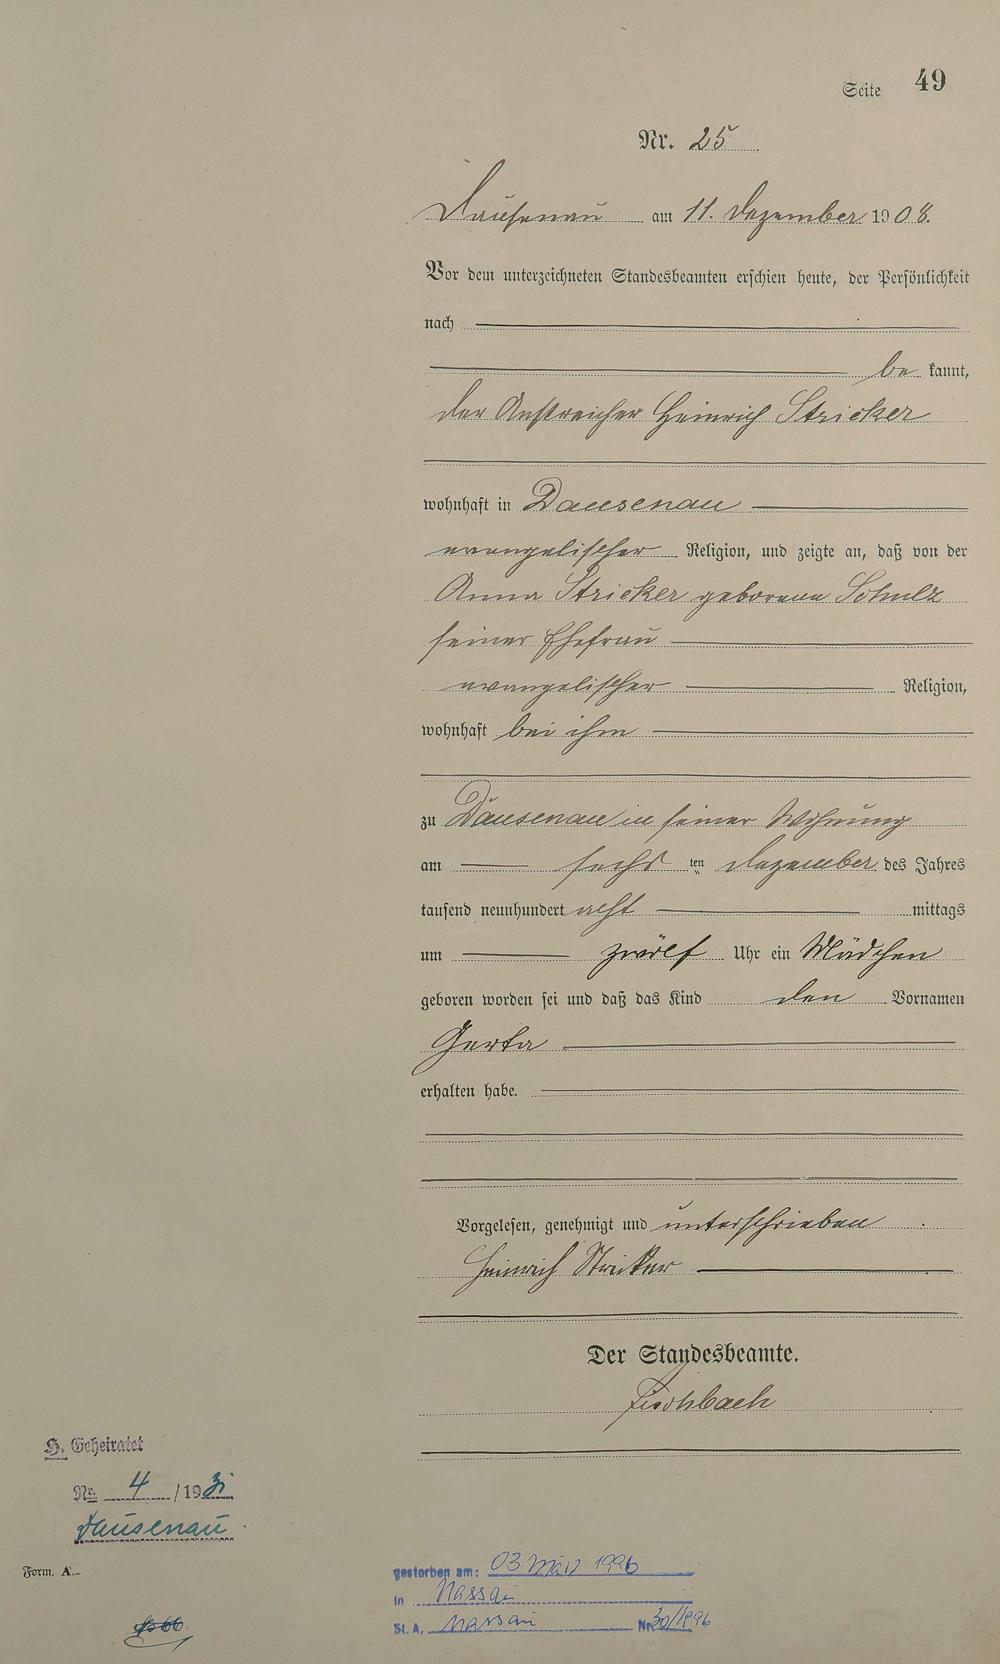 Seite 49
Nr. 25
Dausenau am 11. Dezember 1908.
Vor dem unterzeichneten Standesbeamten erschien heute, der Persönlichkeit
nach
be kannt,
der Anstreicher Heinrich Stricker
wohnhaft in Dausenau
evangelischer Religion, und zeigte an, daß von der
Anna Stricker geborene Schulz
seiner Ehefrau
evangelischer Religion,
wohnhaft bei ihm
zu Dausenau in seiner Wohnung
am sechs ten Dezember des Jahres
tausend neunhundert acht mittags
um zwölf Uhr ein Mädchen
geboren worden sei und daß das Kind den Vornamen
Gerta
erhalten habe.
Vorgelesen, genehmigt und unterschrieben
Heinrich Stricker
Der Standesbeamte.
Fischbach
H. Geheiratet
No 4 /1931
Dausenau
Form. A.
gestorben am: 03 März 1996
in Nassau
St. A. Nassau Nr. 30/1996